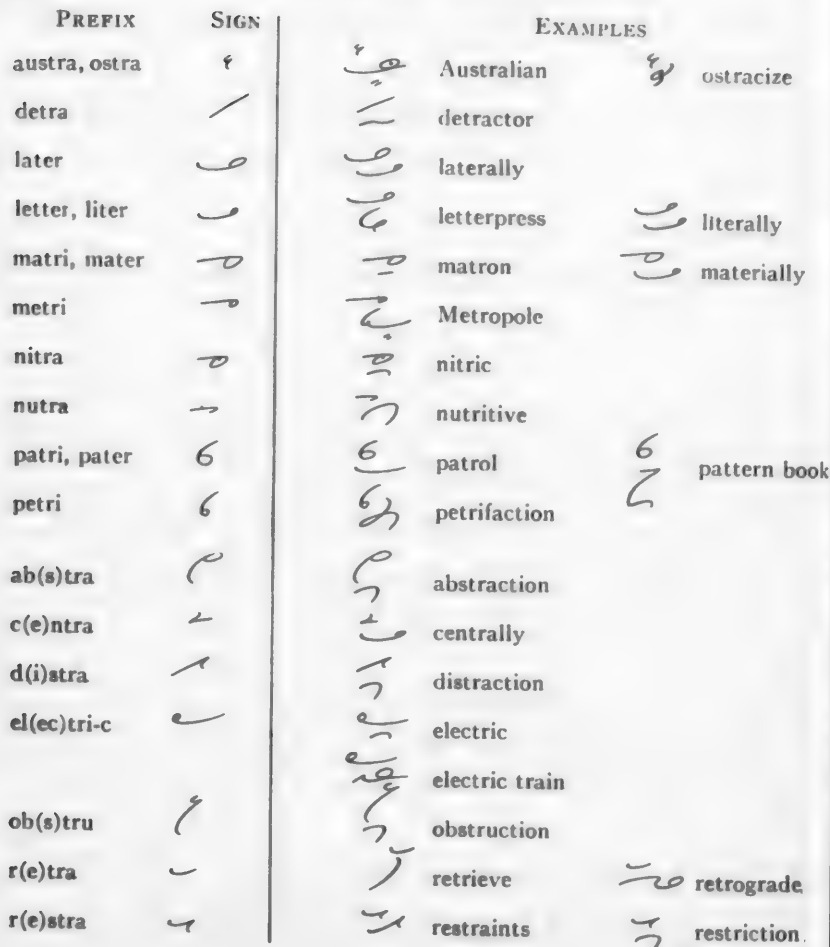 PREFIX SIGN EXAMPLES
austra, ostra Australian ostracize
detra detractor
later laterally
letter, liter letterpress literally
matri, mater matron materially
metri Metropole
nitra nitric
nutra nutritive
patri, pater patrol pattern book
petri petrifaction
ab(s)tra abstraction
c(e)ntra centrally
d(i)stra distraction
el(ec)tri-c electric
electric train
ob(s)tru obstruction
r(e)tra retrieve retrograde
r(e)stra restraints restriction